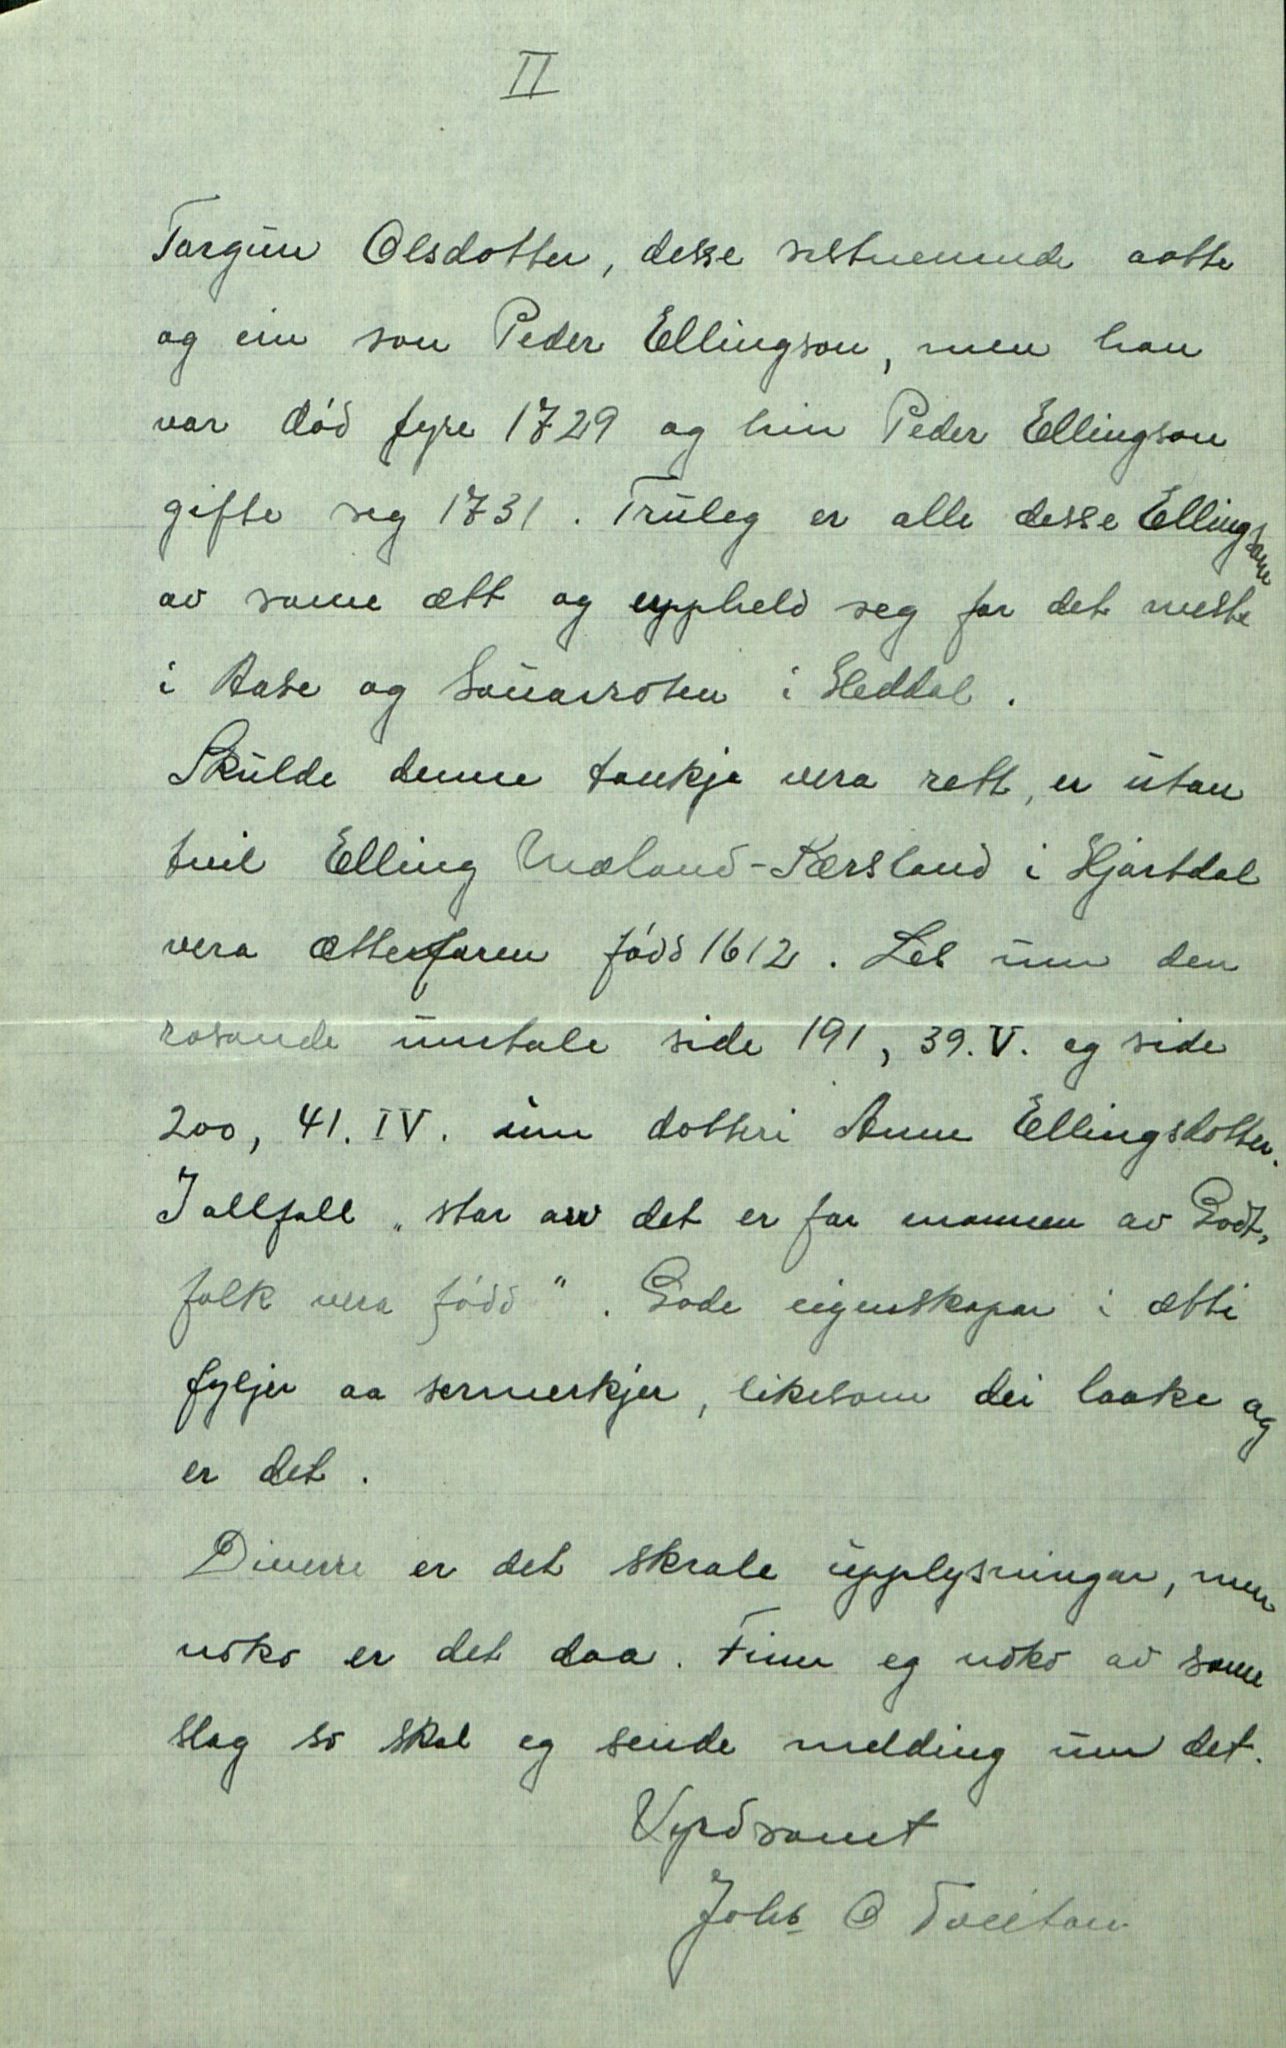 II
Torgun Olsdotter, desse sistnemnde aatte
og ein son Peder Ellingson, men han
var död fyre 1729 og hin Peder Ellingson
gifte seg 1731. Truleg er alle desse Ellingsone
av same ætt og uppheld seg for det meste
i Aase og Sauarroten i Heddal.
Skulde denne tankje vera rett, er utan
tvil Elling Mæland-Kærsland i Hjartdal
vera ætterfaren född 1612. Les um den
rosande umtale side 191, 39. V. og side
200, 41. IV. um dotteri Anne Ellingsdotter.
I allfall „ star arv det er for mannen av Godt,
folk vera född". Gode eigenskapar i ætti
fylgjer aa sermerkjer, likesom dei laake og
er det.
Diverre er det skrale upplysningar, men
noko er det daa. Finn eg noko av same
slag so skal eg sende melding um det.
Vyrdsamt
Johs O Tveitan